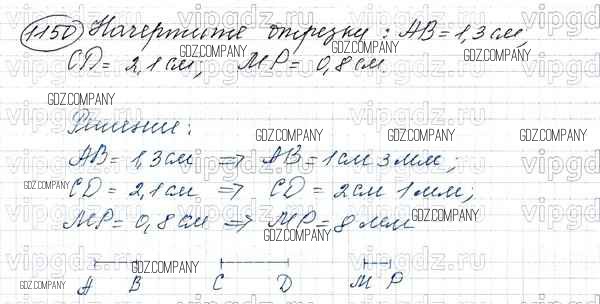 1150 Начертите отрезки: AB = 1,3 см,
CD = 2,1 см; MP = 0,8 см.
Решение:
AB = 1,3 см => AB = 1 см 3 мм;
CD = 2,1 см => CD = 2 см 1 мм;
MP = 0,8 см => MP = 8 мм
A B C D M P
GDZ.COMPANY
vipgdz.ru